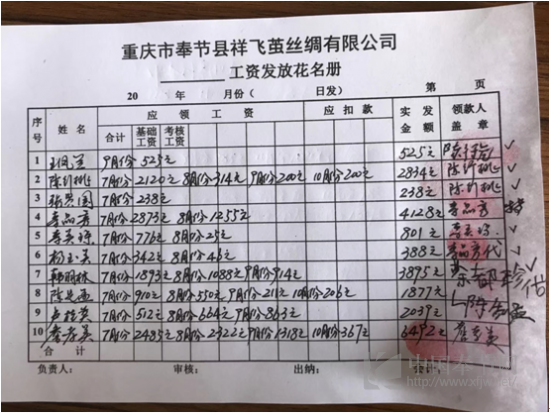 重庆市奉节县祥飞茧丝绸有限公司
工资发放花名册
20 年 月份( 日发) 第 页
序号 姓名 应领工资 应扣款 实发金额 领款人盖章
合计 基础工资 考核工资
1 9月份 525元 525元
2 陈 桃 7月份 2120元 8月份 314元 9月份 200元 10月份 200元 2834元 陈 桃
3 7月份 238元 238元 陈 桃
4 李品秀 7月份 2873元 8月份 1255元 4128元 李品秀
5 7月份 776元 8月份 25元 801元
6 杨 7月份 342元 8月份 46元 388元 李品秀代
7 韩丽林 7月份 1893元 8月份 1088元 9月份 914元 3895元
8 陈 7月份 910元 8月份 550元 9月份 211元 10月份 206元 1877元
9 卢桂英 7月份 512元 8月份 664元 9月份 863元 2039元
10 7月份 2485元 8月份 2322元 9月份 1318元 10月份 367元 6492元
合计
负责人: 审核: 出纳: